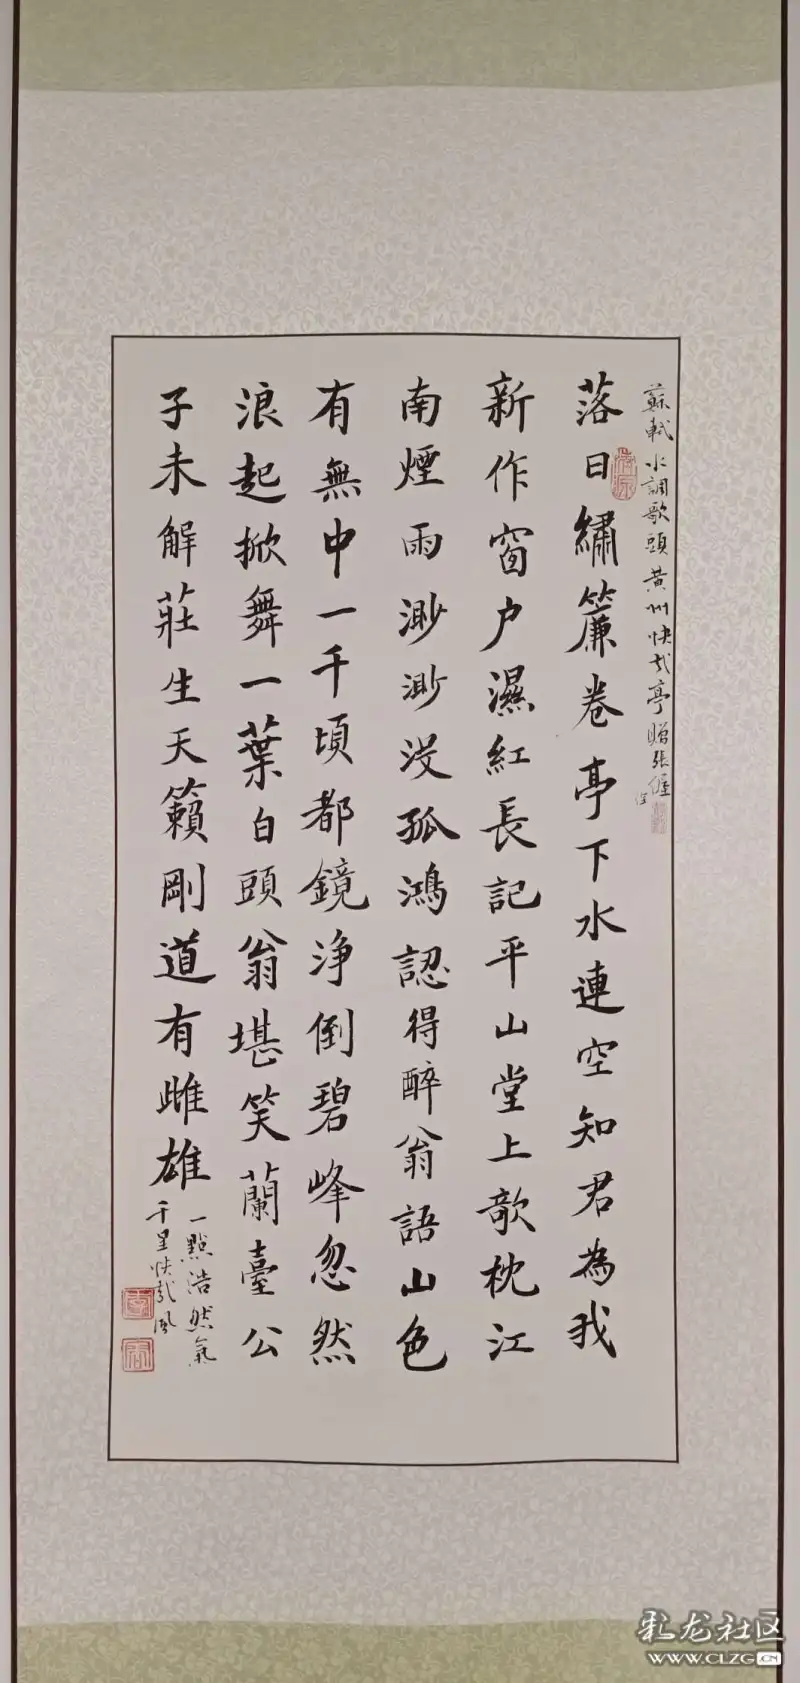 蘇軾水調歌頭黄州快哉亭贈張偓佺
落日繡簾卷亭下水連空知君為我
新作窗户濕紅長記平山堂上欹枕江
南煙雨渺渺没孤鴻認得醉翁語山色
有無中一千頃都鏡浄倒碧峰忽然
浪起掀舞一葉白頭翁堪笑蘭臺公
子未解莊生天籟剛道有雌雄
一點浩然氣
千里快哉風
彩龙社区
WWW.CLZG.CN